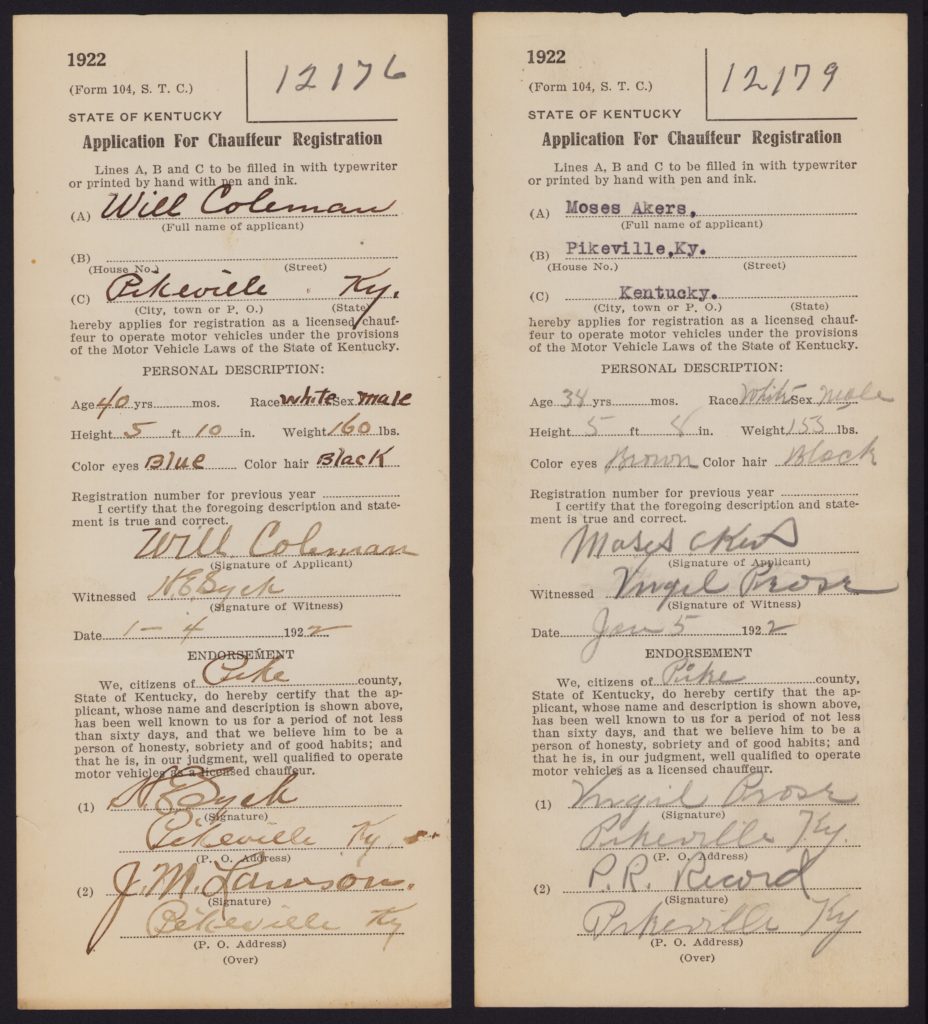 1922
12176
(Form 104, S. T. C.)
STATE OF KENTUCKY
Application For Chauffeur Registration
Lines A, B and C to be filled in with typewriter
or printed by hand with pen and ink.
(A) Will Coleman
(Full name of applicant)
(B)
(House No.) (Street)
(C) Pikeville Ky.
(City, town or P. O.) (State)
hereby applies for registration as a licensed chauf-
feur to operate motor vehicles under the provisions
of the Motor Vehicle Laws of the State of Kentucky.
PERSONAL DESCRIPTION:
Age 40 yrs. mos. Race white Sex male
Height 5 ft 10 in. Weight 160 lbs.
Color eyes Blue Color hair Black
Registration number for previous year
I certify that the foregoing description and state-
ment is true and correct.
Will Coleman
(Signature of Applicant)
Witnessed H.E. Syck
(Signature of Witness)
Date 1-4 1922
ENDORSEMENT
We, citizens of Pike county,
State of Kentucky, do hereby certify that the ap-
plicant, whose name and description is shown above,
has been well known to us for a period of not less
than sixty days, and that we believe him to be a
person of honesty, sobriety and of good habits; and
that he is, in our judgment, well qualified to operate
motor vehicles as a licensed chauffeur.
(1) H.E. Syck
(Signature)
Pikeville Ky
(P. O. Address)
(2) J.M. Lawson.
(Signature)
Pikeville Ky
(P. O. Address)
(Over)
1922
12179
(Form 104, S. T. C.)
STATE OF KENTUCKY
Application For Chauffeur Registration
Lines A, B and C to be filled in with typewriter
or printed by hand with pen and ink.
(A) Moses Akers,
(Full name of applicant)
(B) Pikeville,Ky.
(House No.) (Street)
(C) Kentucky.
(City, town or P. O.) (State)
hereby applies for registration as a licensed chauf-
feur to operate motor vehicles under the provisions
of the Motor Vehicle Laws of the State of Kentucky.
PERSONAL DESCRIPTION:
Age 34 yrs. mos. Race White Sex Male
Height 5 ft 8 in. Weight 153 lbs.
Color eyes Brown Color hair Black
Registration number for previous year
I certify that the foregoing description and state-
ment is true and correct.
Moses
(Signature of Applicant)
Witnessed Virgil Prose
(Signature of Witness)
Date Jan 5 1922
ENDORSEMENT
We, citizens of Pike county,
State of Kentucky, do hereby certify that the ap-
plicant, whose name and description is shown above,
has been well known to us for a period of not less
than sixty days, and that we believe him to be a
person of honesty, sobriety and of good habits; and
that he is, in our judgment, well qualified to operate
motor vehicles as a licensed chauffeur.
(1) Virgil Prose
(Signature)
Pikeville Ky.
(P. O. Address)
(2) P.R. Record
(Signature)
Pikeville Ky
(P. O. Address)
(Over)